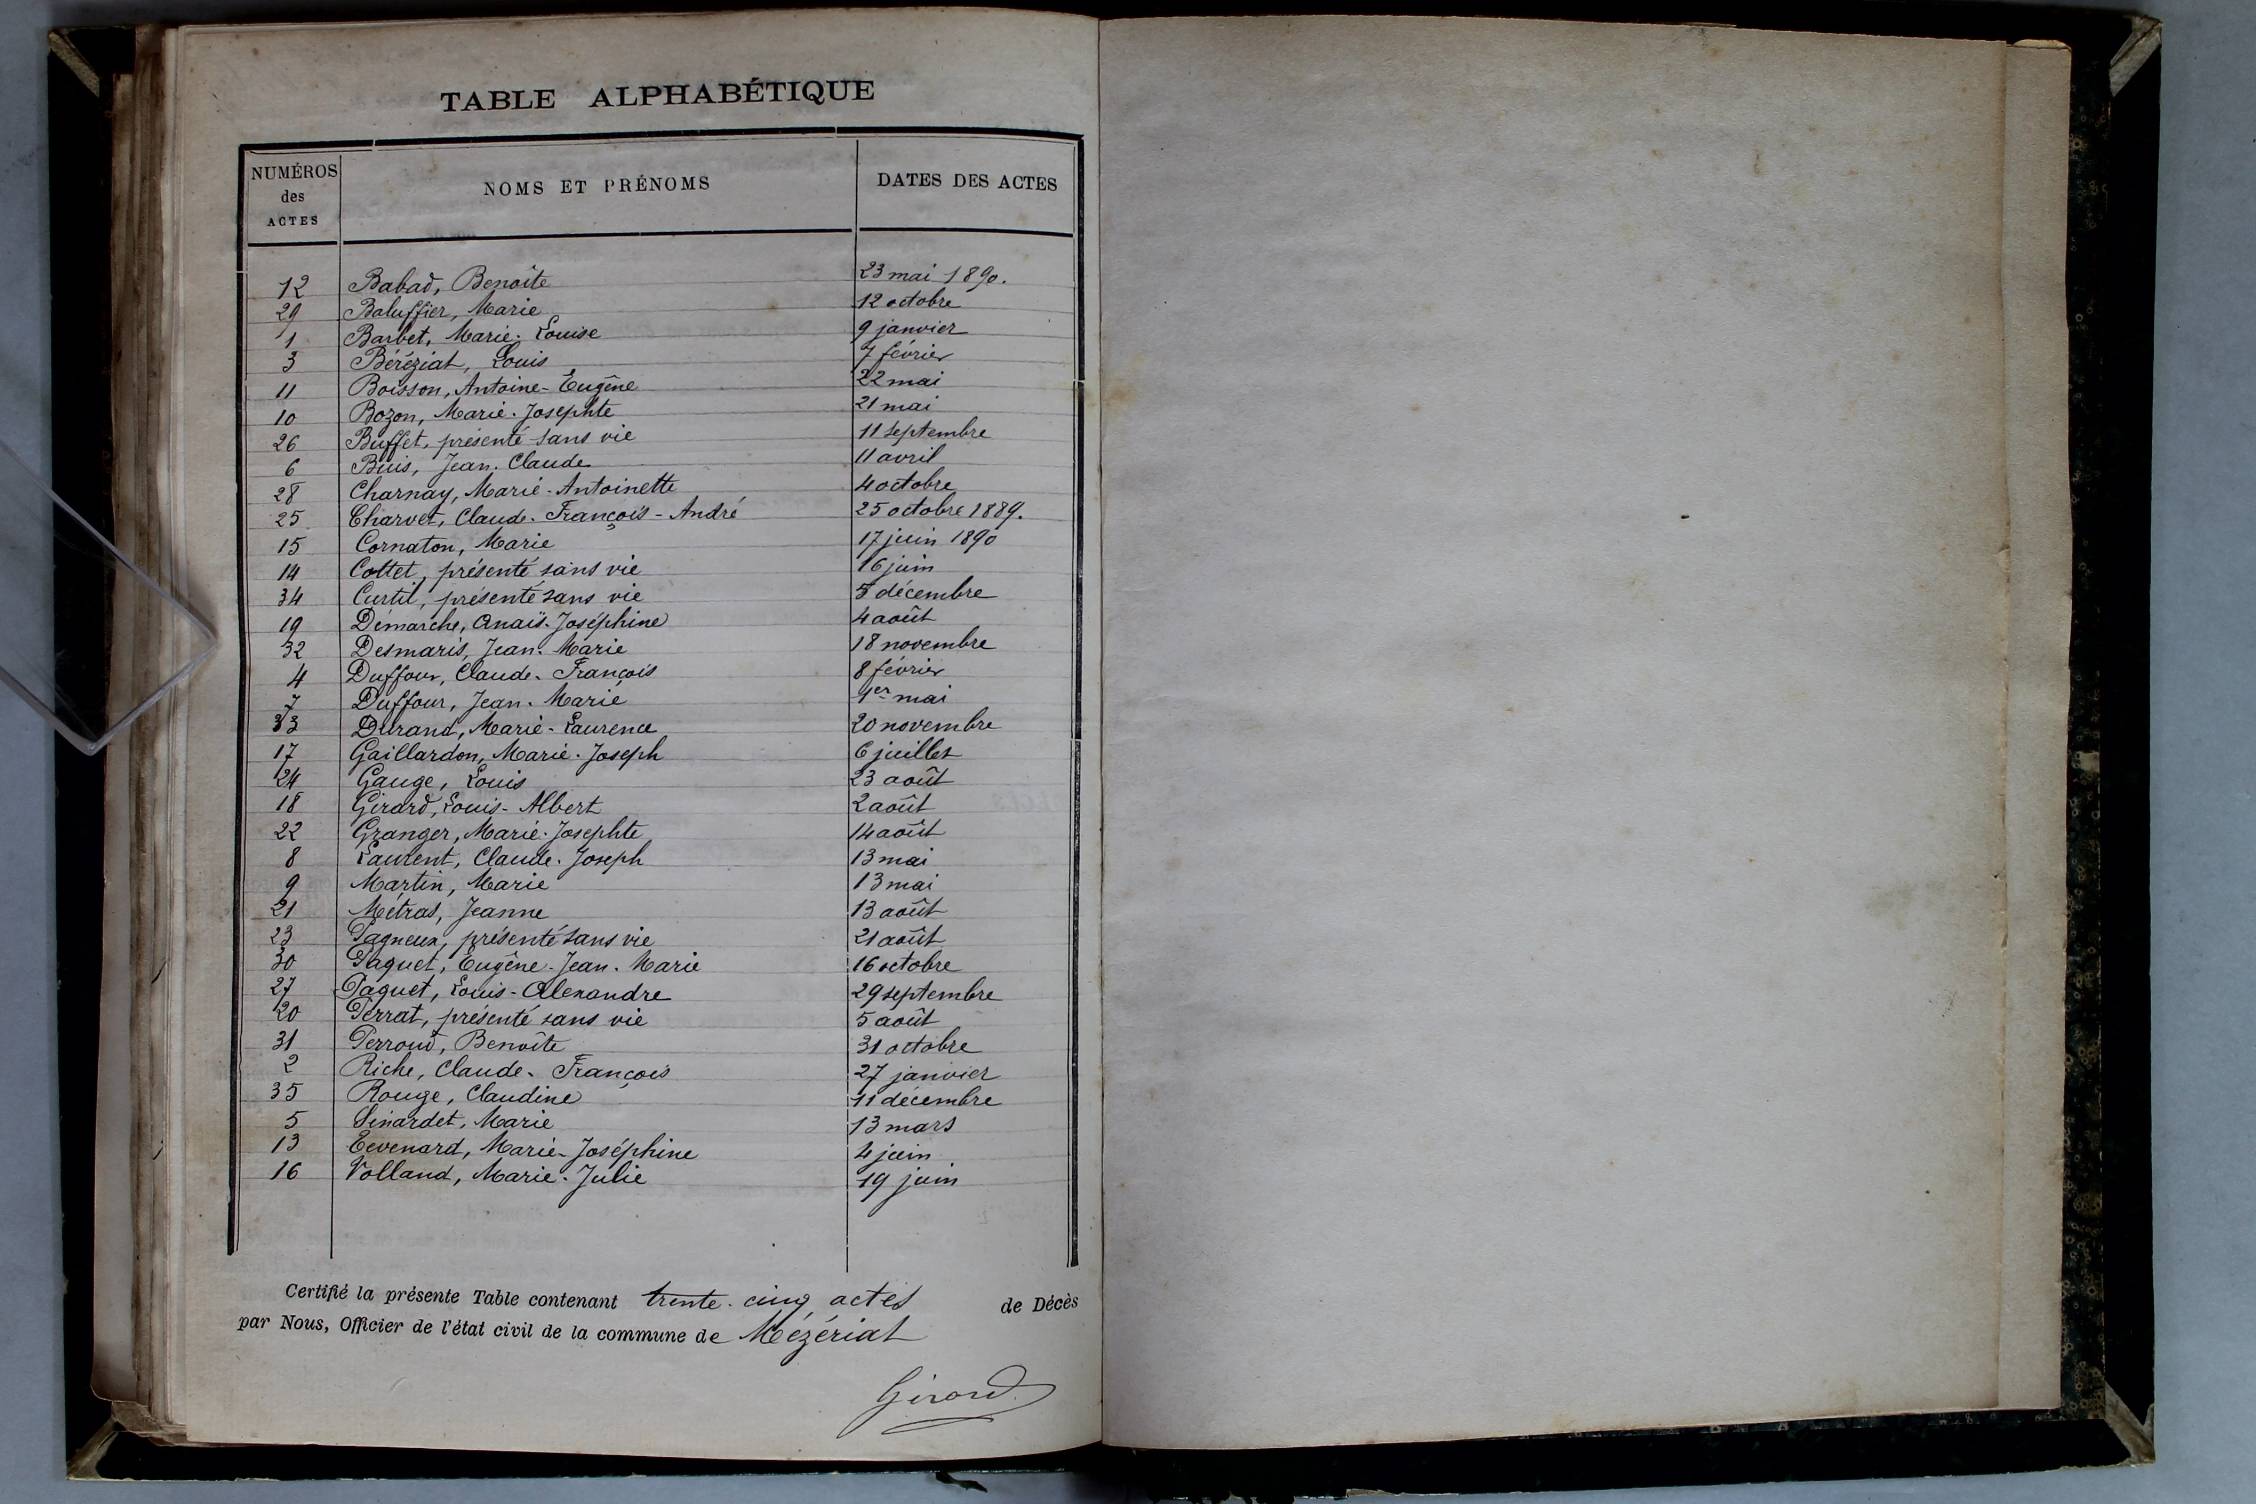 TABLE ALPHABÉTIQUE
NUMÉROS des ACTES NOMS ET PRÉNOMS DATES DES ACTES
12 Babad, Benoîte 23 mai 1890.
29 Baluffier, Marie 12 octobre
1 Barbet, Marie-Louise 9 janvier
3 Béréziat, Louis 7 février
11 Boisson, Antoine-Eugène 22 mai
10 Bozon, Marie-Josephte 21 mai
26 Buffet, présenté sans vie 11 septembre
6 Buis, Jean-Claude 11 avril
28 Charnay, Marie-Antoinette 4 octobre
25 Charvet, Claude-François-André 25 octobre 1889.
15 Cornaton, Marie 17 juin 1890
14 Cottet, présenté sans vie 16 juin
34 Curtil, présenté sans vie 5 décembre
19 Démarche, Anaïs-Joséphine 4 août
32 Desmaris, Jean-Marie 18 novembre
4 Duffour, Claude-François 8 février
7 Duffour, Jean-Marie 1er mai
33 Durand, Marie-Laurence 20 novembre
17 Gaillardon, Marie-Joseph 6 juillet
24 Gauge, Louis 23 août
18 Girard, Louis-Albert 2 août
22 Granger, Marie-Josephte 14 août
8 Laurent, Claude-Joseph 13 mai
9 Martin, Marie 13 mai
21 Métras, Jeanne 13 août
23 Pagneux, présenté sans vie 21 août
30 Paquet, Eugène-Jean-Marie 16 octobre
27 Paquet, Louis-Alexandre 29 septembre
20 Perrat, présenté sans vie 5 août
31 Perroud, Benoîte 31 octobre
2 Riche, Claude-François 27 janvier
35 Rouge, Claudine 11 décembre
5 Sinardet, Marie 13 mars
13 Tevenard, Marie-Joséphine 4 juin
16 Volland, Marie-Julie 19 juin
Certifié la présente Table contenant trente-cinq actes de Décès
par Nous, Officier de l'état civil de la commune de Mézériat
Girard